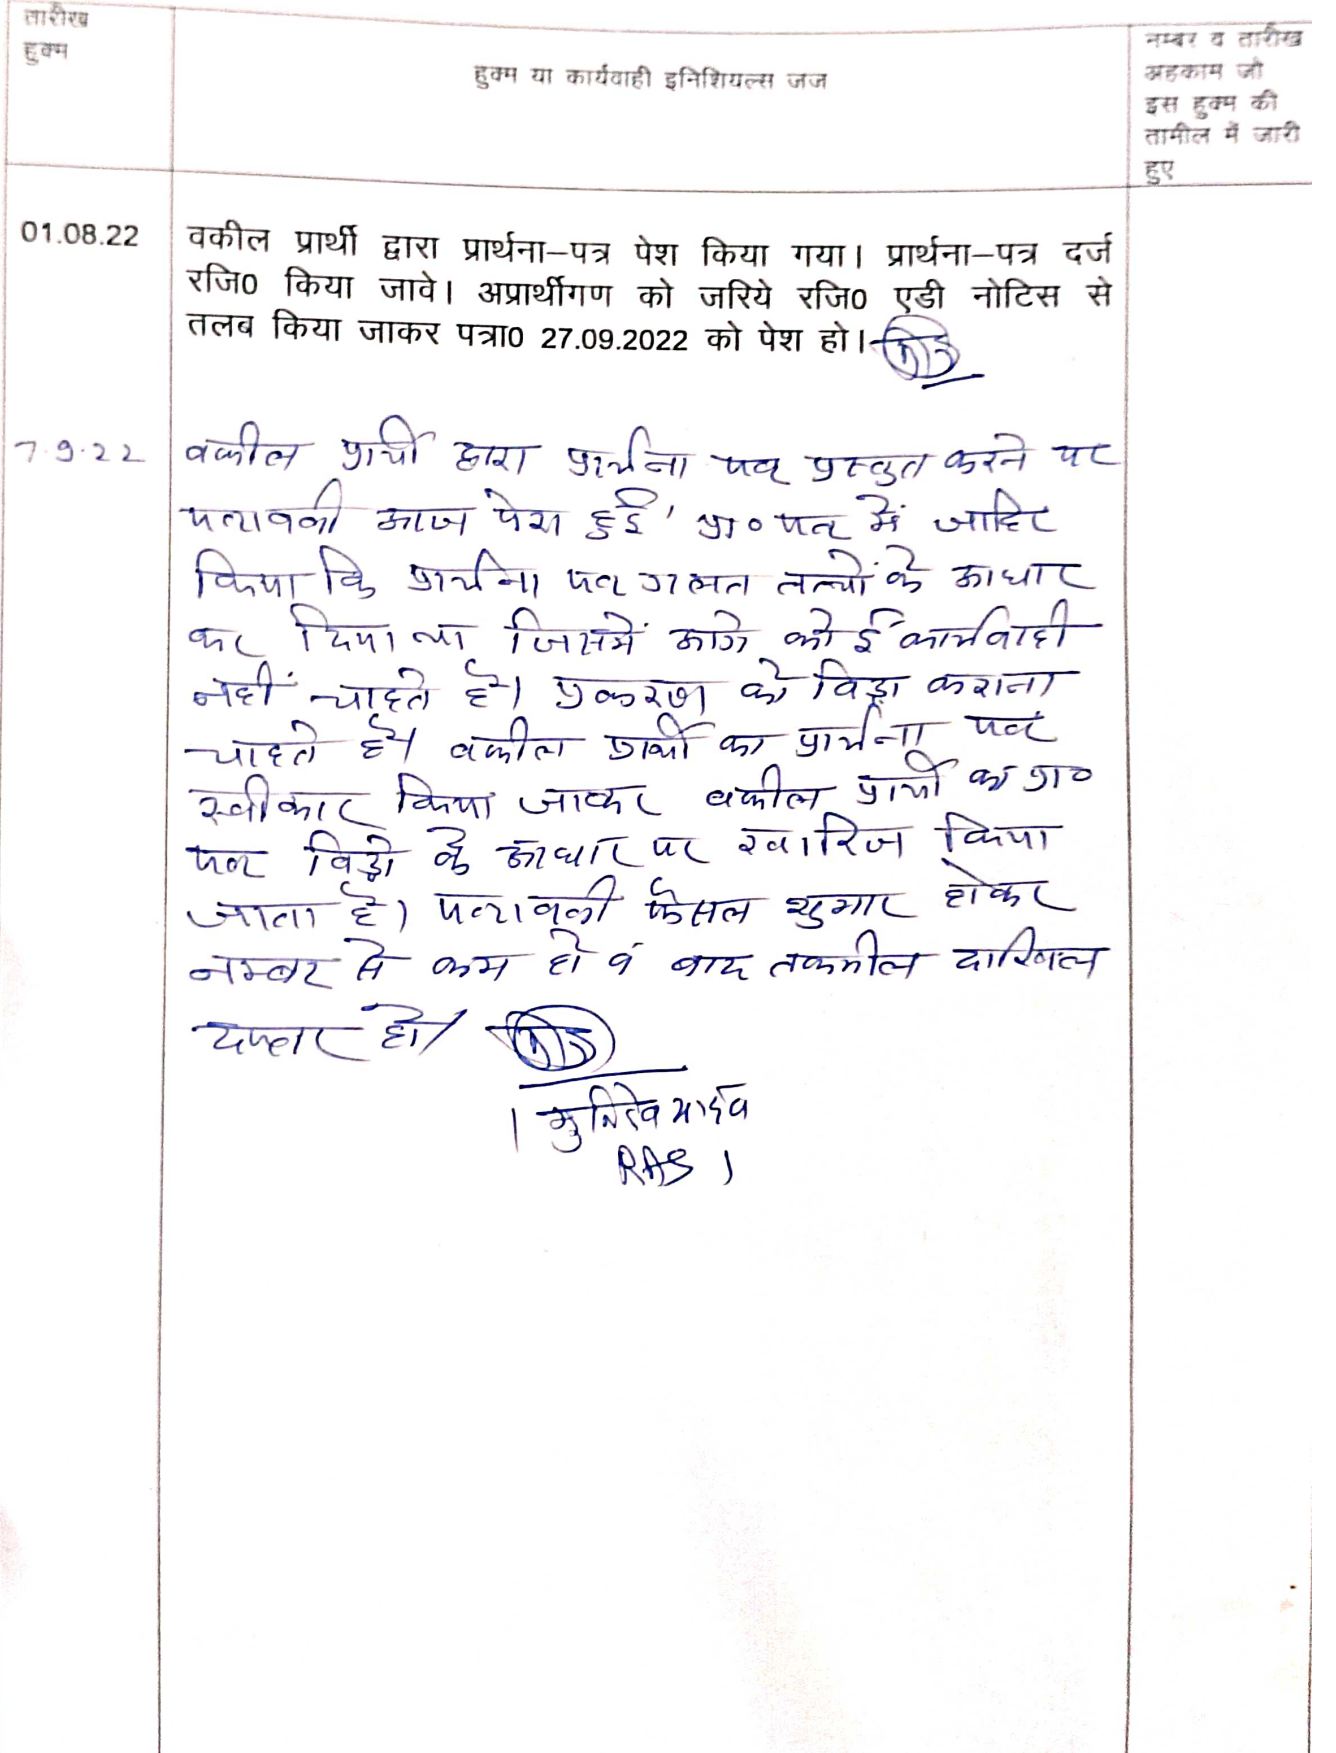 तारीख
हुक्म
हुक्म या कार्यवाही इनिशियल्स जज
नम्बर व तारीख
अहकाम जो
इस हुक्म की
तामील में जारी
हुए
01.08.22
वकील प्रार्थी द्वारा प्रार्थना–पत्र पेश किया गया। प्रार्थना–पत्र दर्ज
रजि0 किया जावे। अप्रार्थीगण को जरिये रजि0 एडी नोटिस से
तलब किया जाकर पत्रा0 27.09.2022 को पेश हो।
7.9.22
वकील प्रार्थी द्वारा प्रार्थना पत्र प्रस्तुत करने पर
पत्रावली आज पेश हुई, प्रा० पत्र में जाहिर
किया कि प्रार्थना पत्र गलत तथ्यों के आधार
कर दिया था जिसमें आगे कोई कार्यवाही
नहीं चाहते है। प्रकरण को विड्रा कराना
चाहते है। वकील प्रार्थी का प्रार्थना पत्र
स्वीकार किया जाकर वकील प्रार्थी का प्रा०
पत्र विड्रो के आधार पर खारिज किया
जाता है। पत्रावली फैसल शुमार होकर
नम्बर से कम हो व बाद तकमील दाखिल
दफ्तर हो।
(मुनिदेव यादव
RAS)